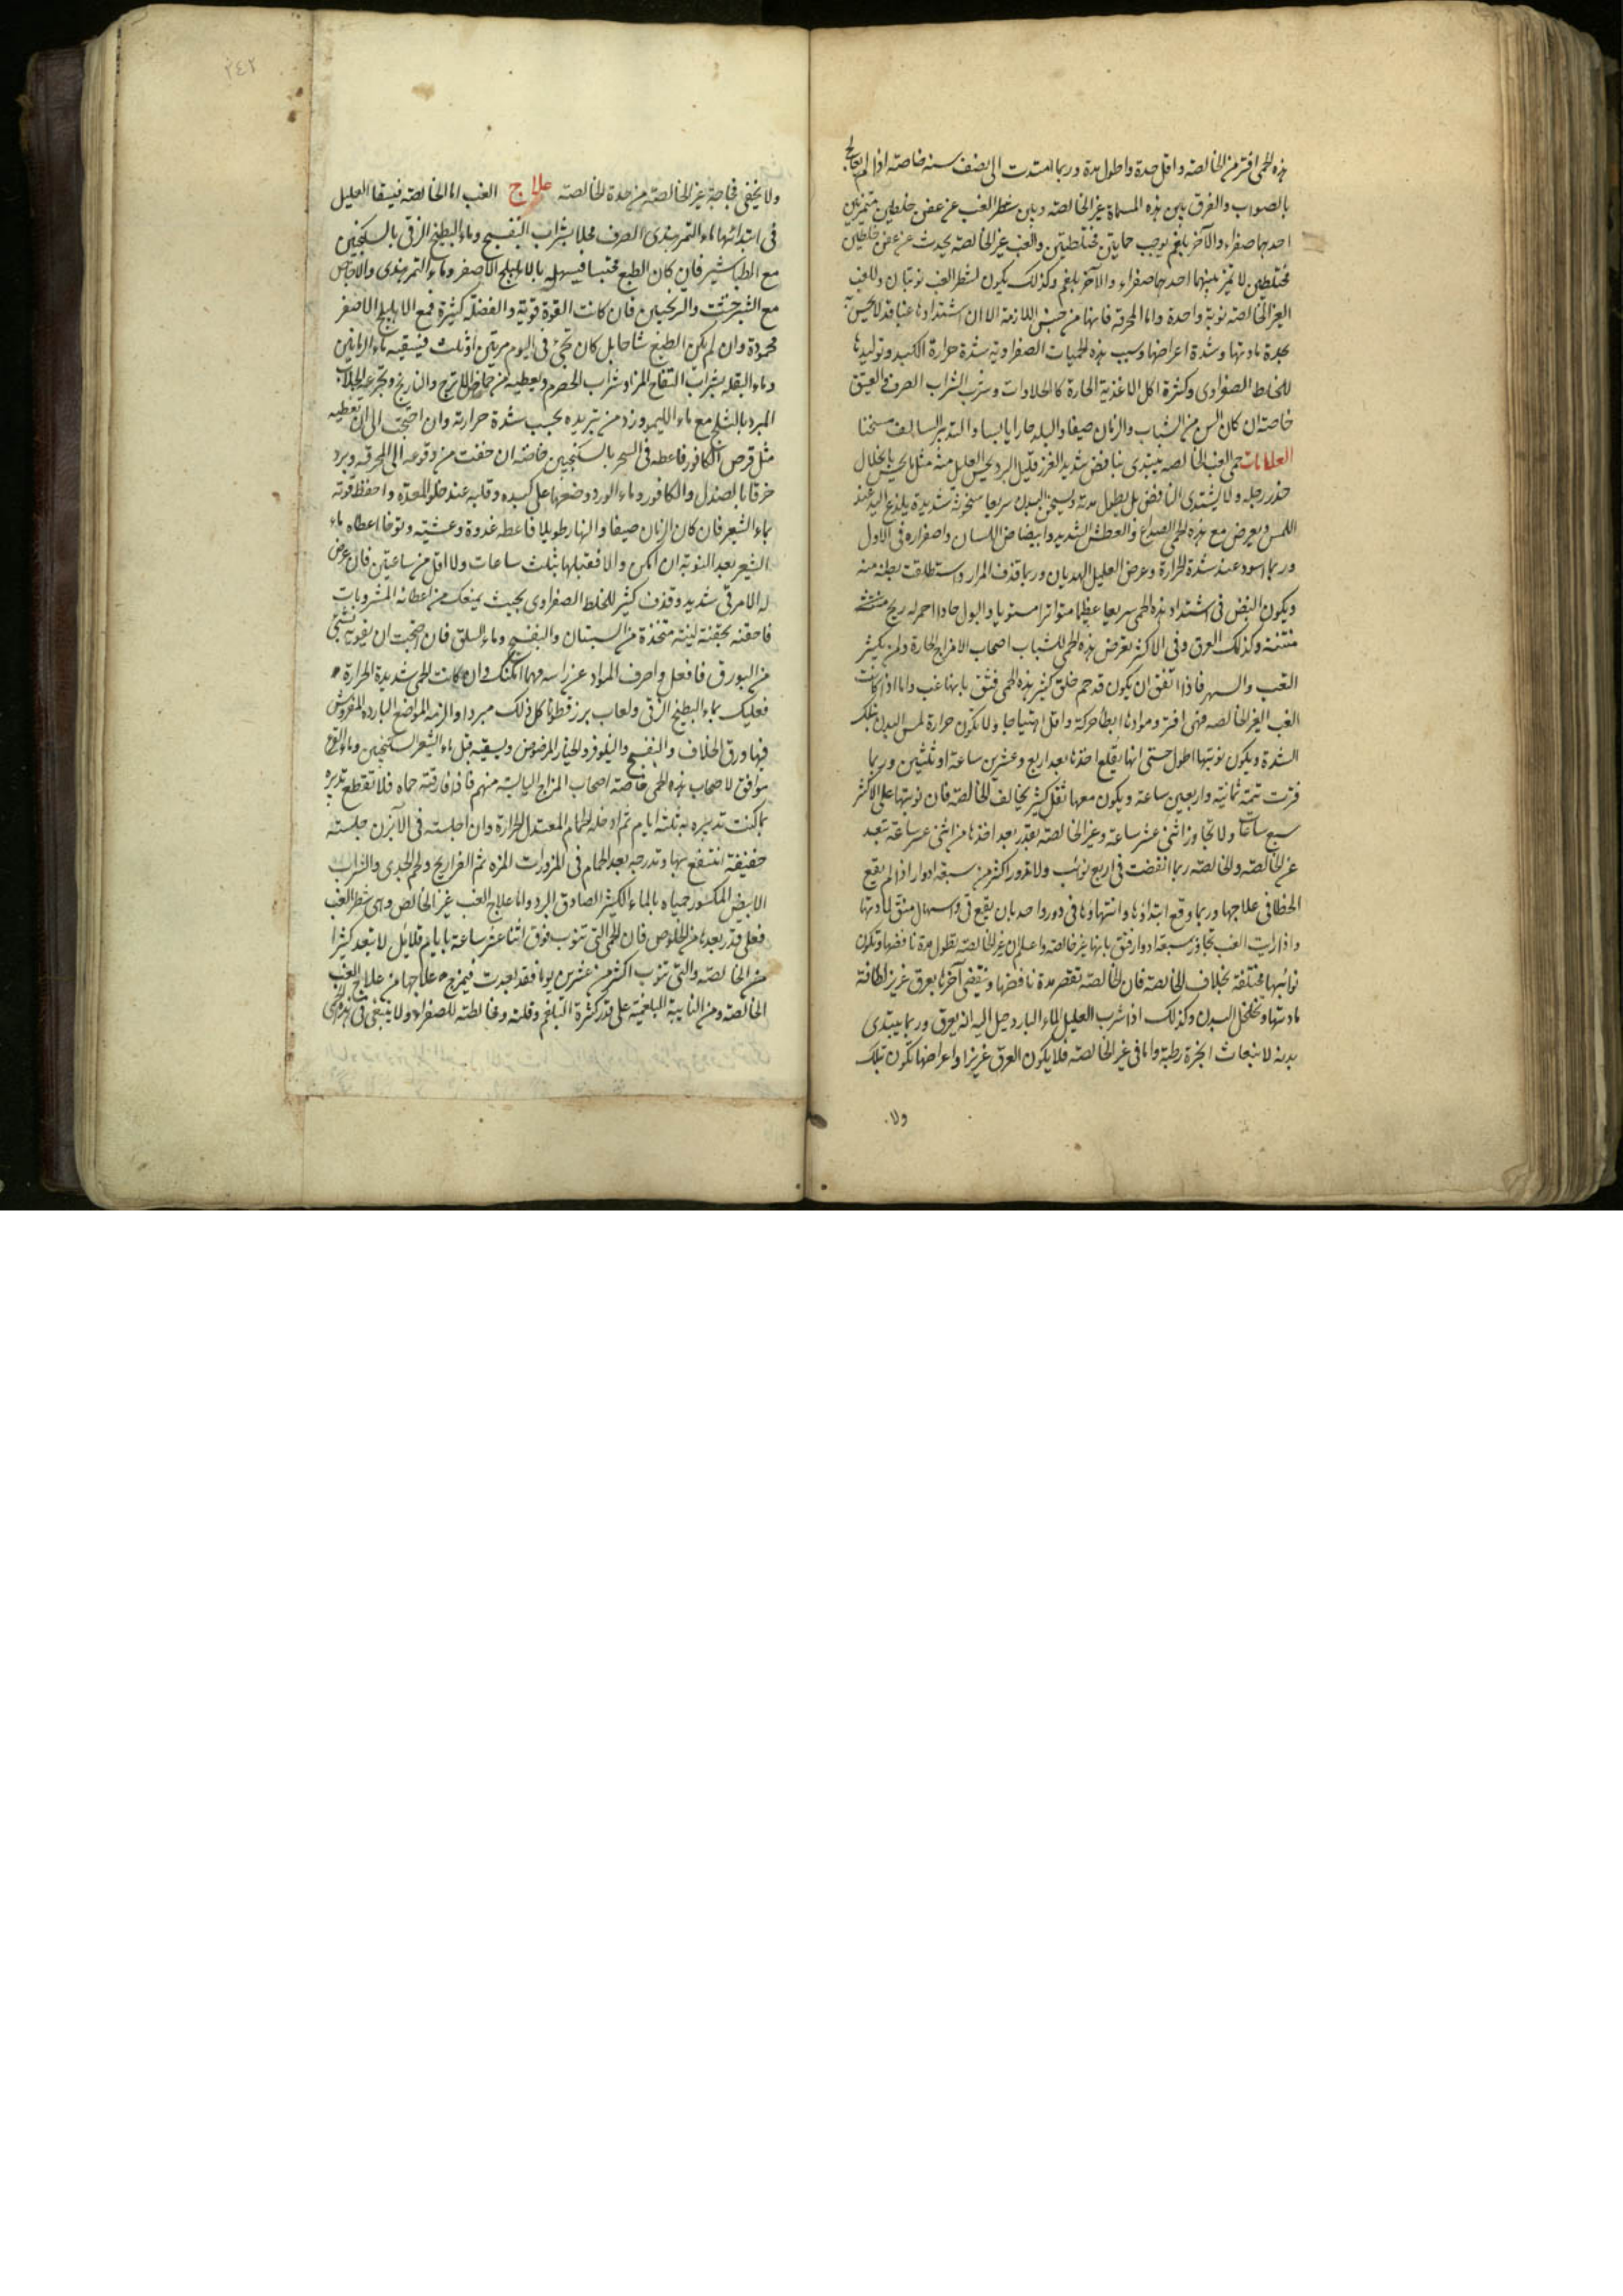 هذه الحمى افتر من الخالصة واقل حدة واطول مدة وربما امتدت الى نصف سنة خاصة اذا لم يعالج
بالصواب والفرق بين هذه المسماة غير الخالصة وبين شطر الغب عن عفن خلطين متميزين
احدهما صفراء والآخر بلغم يوجب حمايتين مختلطتين والغب غير الخالصة يحدث عن عفن خلطين
مختلطين لا تميز بينهما احدهما صفراء والآخر بلغم وكذلك يكون لشطر الغب نوبتان وللغب
الغير الخالصة نوبة واحدة واما المحرقة فانها من جنس اللازمة الا ان اشتدادها غبا قد لا يحس به
بحدة مادتها وشدة اعراضها وسبب هذه الحميات الصفراوية شدة حرارة الكبد وتوليدها
للخلط الصفراوى وكثرة اكل الاغذية الحارة كالحلاوات وشرب الشراب الصرف العتيق
خاصة ان كان السن من الشباب والزمان صيفا والبلد حارا يابسا والتدبير السالف مسخنا
العلامات حمى الغب الخالصة يبتدى بنافض شديد الغرز قليل البرد يحس العليل منه مثل ما يحس بانحلال
خدر رجله ولا يشتدى النافض بل يطول مدته ويسخن البدن سريعا سخونة شديدة يلذع اليد عند
اللمس ويعرض مع هذه الحمى الصداع والعطش الشديد وابيضاض اللسان واصفراره فى الاول
وربما اسود عند شدة الحرارة وعرض العليل الهذيان وربما قذف المرار واستطلقت بطنه منه
ويكون النبض فى اشتداد هذه الحمى سريعا عظيما متواترا مستويا والبول حادا احمر له ريح
منتنة وكذلك العرق وفى الاكثر تعرض هذه الحمى للشباب اصحاب الامزاج الحارة ولمن يكثر
التعب والسهر فاذا اتفق ان يكون قد حم خلق كثير بهذه الحمى فثق بانها غب واما اذا كانت
الغب الغير الخالصة فهى افتر وموادها ابطأ حركة واقل اهتياجا ولا تكون حرارة لمس البدن بتلك
الشدة ويكون نوبتها اطول حتى انها يقلع اخذها بعد اربع وعشرين ساعة او ثلثين وربما
فترت تتمة ثمانية واربعين ساعة ويكون معها ثقل كثير يخالف الخالصة فان نوبتها على الاكثر
سبع ساعات ولا تجاوز اثنى عشر ساعة وغير الخالصة بقدر بعد اخذها من اثنى عشر ساعة تبعد
عن الخالصة والخالصة ربما انقضت فى اربع نوائب ولا تدور اكثر من سبعة ادوار اذا لم يقع
الخطا فى علاجها وربما وقع ابتداؤها وانتهاؤها فى دور واحد بان يقع قى واسهال منق لمادتها
واذا رايت الغب تجاوز سبعة ادوار فثق بانها غير خالصة واعلم ان غير الخالصة تطول مدة نافضها وتكون
نوائبها مختلفة بخلاف الخالصة فان الخالصة تقصر مدة نافضها وينقضى آخرها بعرق غزير لطافة
مادتها وتخلخل البدن وكذلك اذا شرب العليل الماء البارد خيل اليه انه يعرق وربما يبتدى
بدنه لانبعاث ابخرة رطبة واما فى غير الخالصة فلا يكون العرق غزيرا واعراضها تكون تلك
ولا
٢٤٢
ولا يخفى فجاجة غير الخالصة من حدة الخالصة علاج الغب اما الخالصة فيسقا العليل
فى ابتدائها ماء التمر هندى الصرف محلا بشراب البنفسج وماء البطيخ الرقى بالسكنجبين
مع الطباشير فان كان الطبع محتبسا فيسهله بالاهليلج الاصفر وماء التمر هندى والاجاص
مع الشيرخشت والترنجبين فان كانت القوة قوية والفضلة كثيرة فمع الاهليلج الاصفر
محمودة وان لم يكن الطبع متاحا بل كان تجئ فى اليوم مرتين او ثلث فيسقيه ماء الرمانين
وماء البقلة بشراب التفاح المز او شراب الحصرم ويعطيه من حماض الاترج والنارنج وتجرعه الجلاب
المبرد بالثلج مع ماء الليمو وزد من تبريده بحسب شدة حرارته وان احتجت الى ان تعطيه
مثل قرص الكافور فاعطه فى السحر بالسكنجبين خاصة ان خفت من وقوعه الى المحرقة وبرد
خرقا بالصندل والكافور وماء الورد وضعها على كبده وقلبه عند خلو المعدة واحفظ قوته
بماء الشعير فان كان الزمان صيفا والنهار طويلا فاعطه غدوة وعشية وتوخا اعطاه ماء
الشعير بعد النوبة ان امكن والا فقبلها بثلث ساعات ولا اقل من ساعتين فان عرض
له الامر قى شديد وقذف كثير للخلط الصفراوى بحيث يمنعك من اعطائه المشروبات
فاحقنه بحقنة لينة متخذة من السبستان والبنفسج وماء السلق فان احتجت ان يقويه بشئ
من البورق فافعل واصرف المواد عن راسه مهما امكنك وان كانت الحمى شديدة الحرارة
فعليك بماء البطيخ الرقى ولعاب بزر قطونا كل ذلك مبردا والزمه المواضع الباردة المفروش
فيها ورق الخلاف والبنفسج والنيلوفر والخيار المرضوض ويسقيه قبل ماء الشعير السكنجبين وماء القرع
موافق لاصحاب هذه الحمى خاصة اصحاب المزاج اليابسة منهم فاذا فارقته حماه فلا تقطع تدبيره
بما كنت تدبيره به ثلثة ايام ثم ادخله الحمام المعتدل الحرارة وان اجلسته فى الآبزن جلسته
خفيفة انتفع بها وتدرجه بعد الحمام فى المزورات المزه ثم الفراريج ولحم الجدى والشراب
الابيض المكسور حمياه بالماء الكثير الصادق البرد واما علاج الغب غير الخالص وهى شطر الغب
فعلى قدر بعدها من الخلوص فان الحمى التى تنوب فوق اثنا عشر ساعة بايام قلائل لا تبعد كثيرا
من الخالصة والتى تنوب اكثر من عشرين يوما فقد بعدت فيمزج علاجها من علاج الغب
الخالصة ومن النايبة البلغمية على قدر كثرة البلغم وقلته ومخالطته للصفراء ولا ينبغى فى هذه الحمى